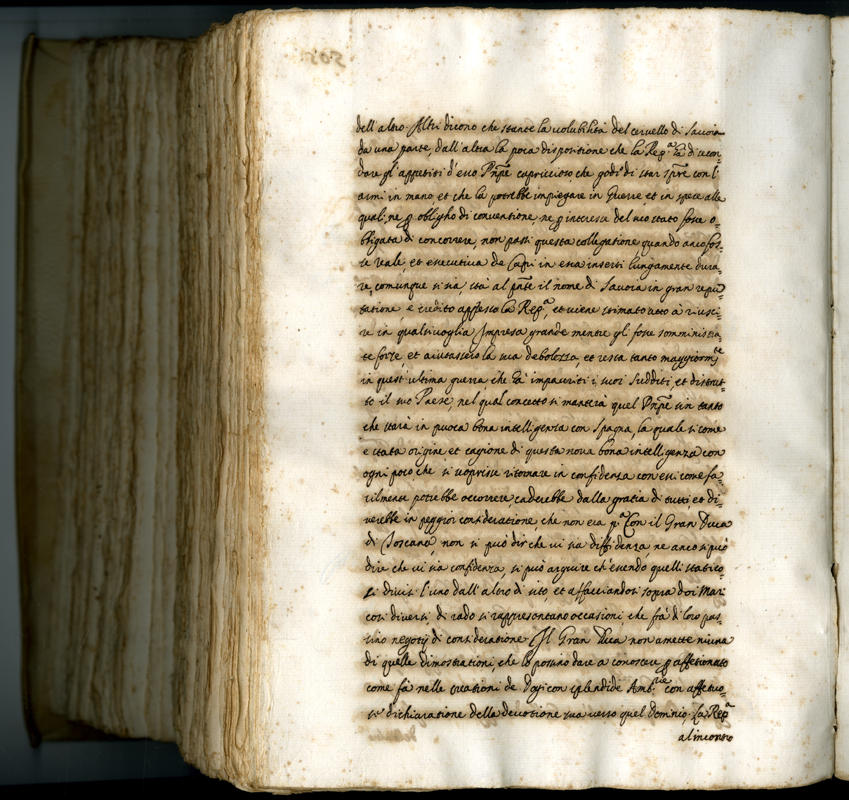 dell'altro. Altri dicono che stante la volubilità del cervello di Savoia
da una parte, dall'altra la poca dispositione che la Rep.ª hà di secon=
dare gl'appetiti d'esso Pnpe capriccioso che gode di star spre con l'
armi in mano et che la potrebbe impiegare in Guerre et in spese alle
quali ne p obligho di conventione, ne p interesse del suo stato fosse o=
bligata di concorrere, non possi questa collegatione quando anco fos=
se reale, et essecutiva de Capi in essa inserti lungamente dura=
re, comunque si sia, stà al pnte il nome di Savoia in gran repu=
tatione e credito appresso la Rep.ª, et viene stimato atto à riusci=
re in qualsivoglia Impresa grande mentre gli fosse somministra=
te forze, et aiutassero la sua debolezza, et resta tanto maggiormte
in quest'ultima guerra, che hà impauriti i suoi sudditi, et distrut=
to il suo Paese, nel qual concetto si manterà quel Pnpe sin tanto
che starà in puoca bona intelligenza con Spagna, la quale si come
e stata origine et cagione di questa nova bona intelligenza con
ogni poco che si scoprisse ritornare in confidenza con essi come fa=
cilmente potrebbe occorrere, caderebbe dalla gratia di tutti, et di=
verebbe in peggior consideratione, che non era pª Con il Gran Duca
di Toscana, non si può dir che vi sia diffidenza, ne anco si può
dire che vi sia confidenza, si può arguire ch'essendo quelli stati co=
si divisi l'uno dall'altro di sito et affacciandosi sopra doi Mari
cosi diversi, di rado si rappresentano occasioni che frà di loro pas=
sino negotij di consideratione. Il Gran Duca non amette niuna
di quelle dimostrationi, che lo possino dare a conoscere p affetionato
come fà nelle creationi de Dogi con splendide Amb.rie con affetuo=
se dichiaratione della devotione sua verso quel Dominio. La Rep.ª
al incontro